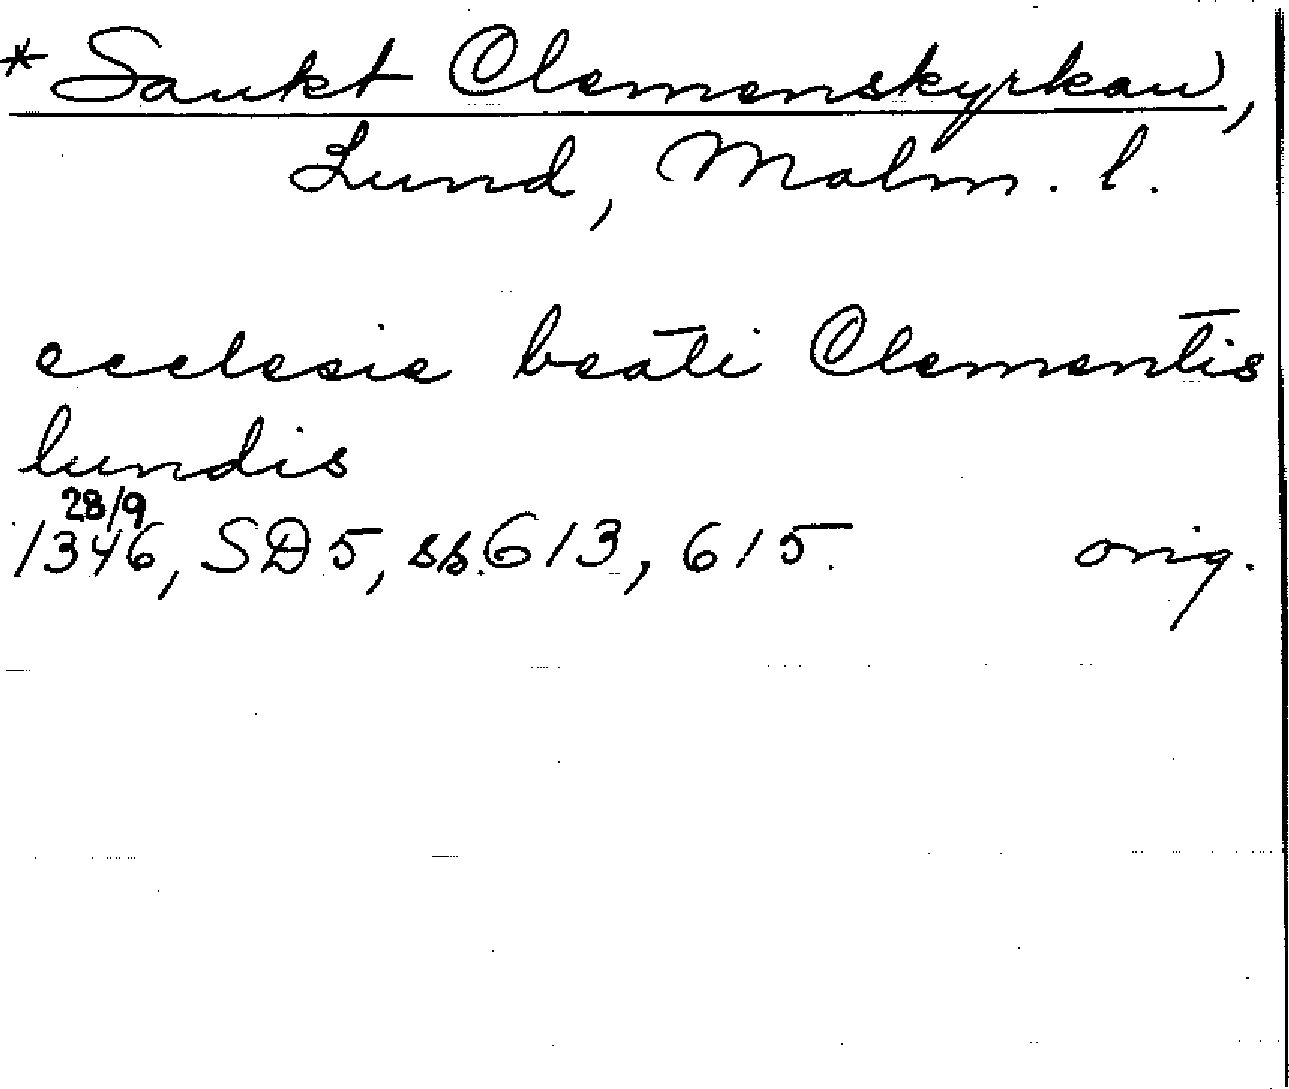 * Sankt Clemenskyrkan,
Lund, Malm. l.
ecclesie beati Clementis
lundis
28/9
1346, SD5, ss. 613, 615. orig.